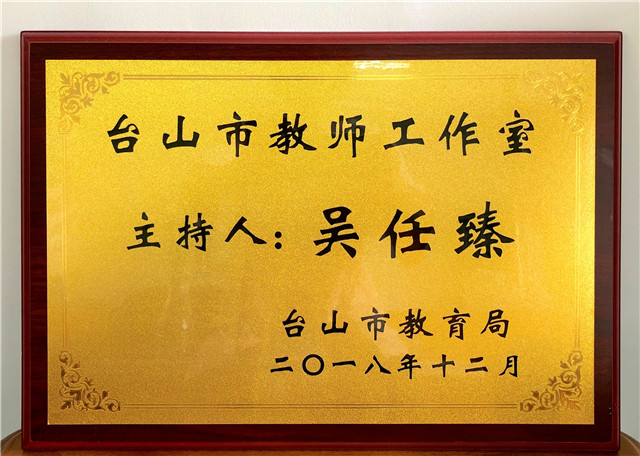 台山市教师工作室
主持人：吴任臻
台山市教育局
二〇一八年十二月